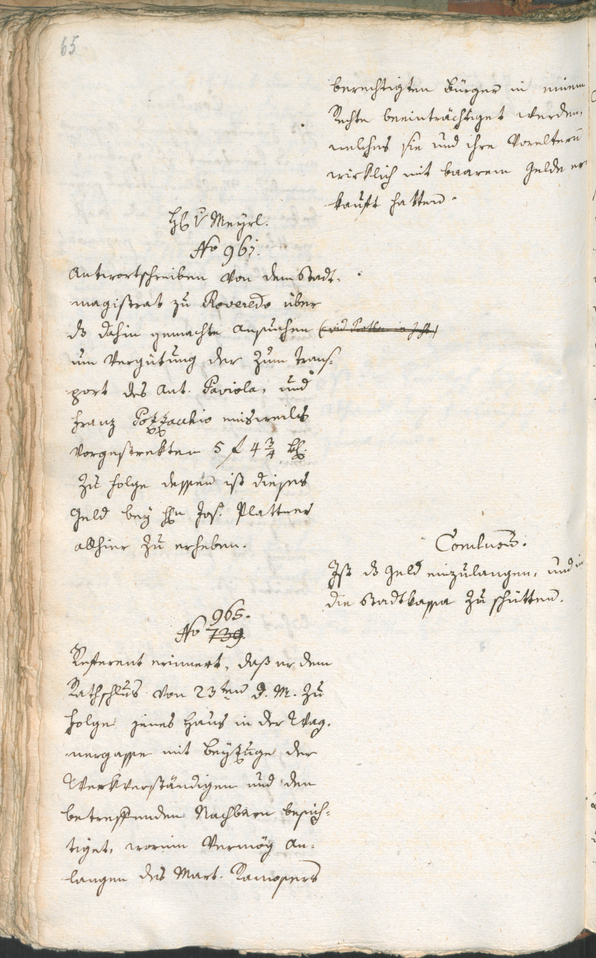 65
berechtigten Bürger in einem
Rechte beeinträchtiget werden,
welches sie und ihre Vorältern
wirklich mit baarem Gelde er
kauft hatten.
H. v Meyrl.
No 967.
Antwortschreiben von dem Stadt-
magistrat zu Roveredo über
das dahin gemachte Ansuchen
um Vergütung der zum Trans-
port des Ant. Paviola, und
Franz Pozzachio einsweils
vorgestrekten 5 f 4 3/4 kr.
Zu folge dessen ist dieses
Geld bey Hrn Jos. Plattner
allhier zu erheben.
Conclusum:
Ist das Geld einzulangen, und in
die Stadtkassa zu schütten.
No 965.
739.
Referent erinnert, daß er dem
Rathschluß von 23ten d. M. zu
folge jenes Haus in der Wag-
nergasse mit Beyzuge der
Werkverständigen und den
betreffenden Nachbarn besich-
tiget, worinn vermög An-
langen des Mart.